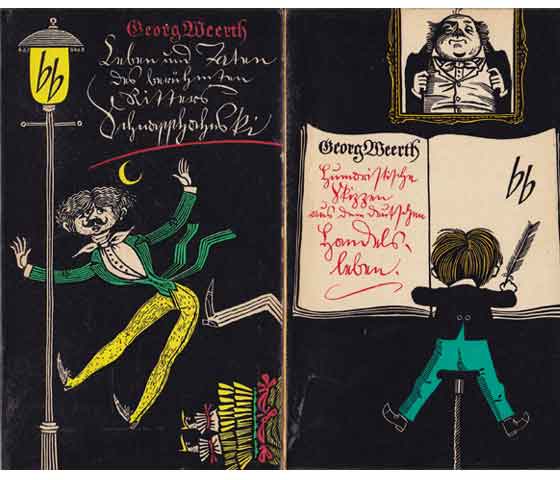 bb
Georg Weerth
Leben und Taten
des berühmten
Ritters
Schnapphahnski
Georg Weerth
Humoristische
Skizzen
aus dem deutschen
Handels-
leben.
bb